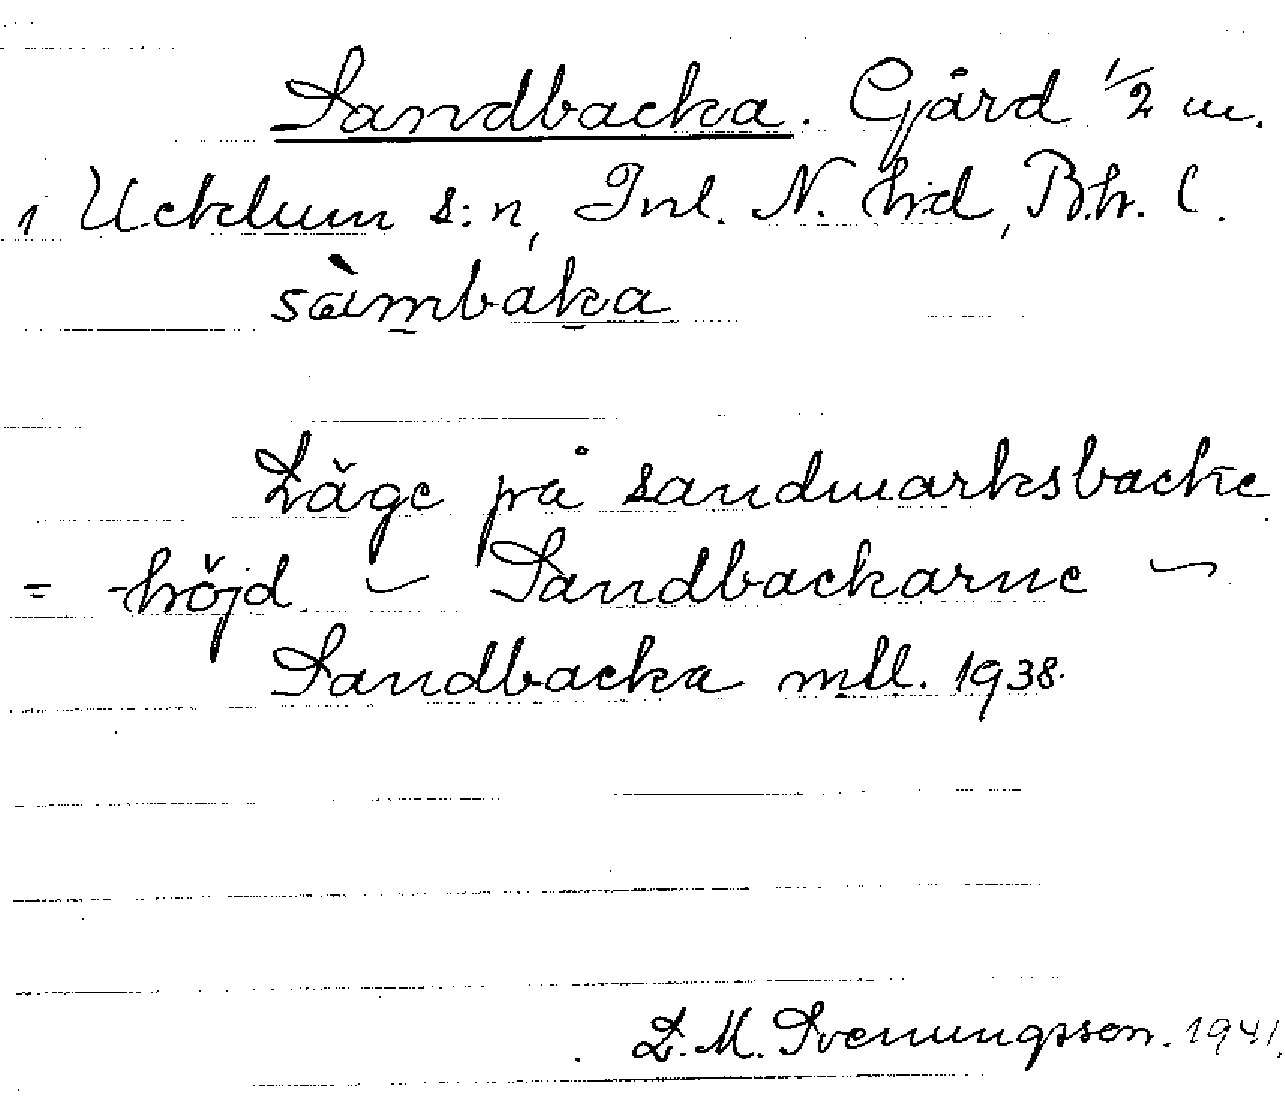 Sandbacka. Gård 1/2 m.
i Ucklum s:n, Inl. N. hd, Bh. l.
sàmbaka
Läge på sandmarksbacke
= -höjd – Sandbackarne –
Sandbacka mtl. 1938.
L. M. Svenungsson. 1941.